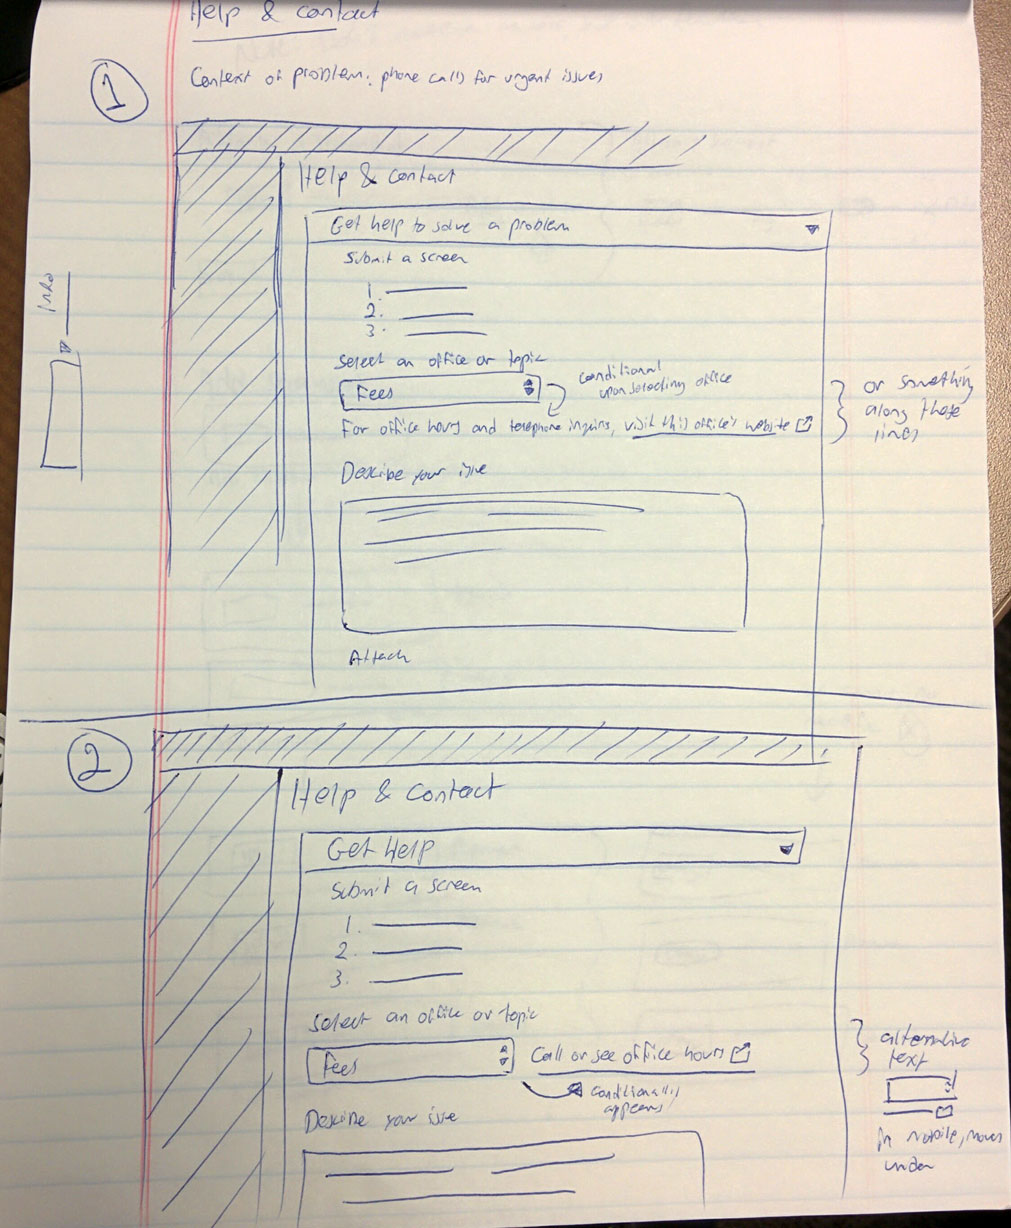 Help & contact
1
Context of problem: phone calls for urgent issues
Help & contact
Get help to solve a problem
Submit a screen
1.
2.
3.
Select an office or topic
Fees
conditional
upon selecting office
For office hours and telephone inquiries, visit this office's website
or something
along those
lines
Describe your issue
Attach
2
Help & contact
Get Help
Submit a screen
1.
2.
3.
Select an office or topic
Fees
Call or see office hours
conditionally
appears
alternative
text
In mobile, moves
under
Describe your issue